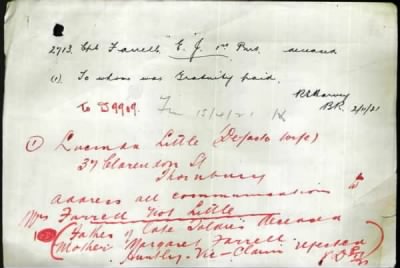 2713. Cpl Farrell E. J. 1st Pnrs. deceased
(1). To whom was Gratuity paid.
BR. 2/4/21
To D9909. 15/4/21
① Lucinda Little (Defacto wife)
37 Clarendon St
Thornbury
address all communications
Mrs Farrell not Little
Father of late Soldier deceased
Mother Margaret Farrell
Huntly. Vic - Claim rejected